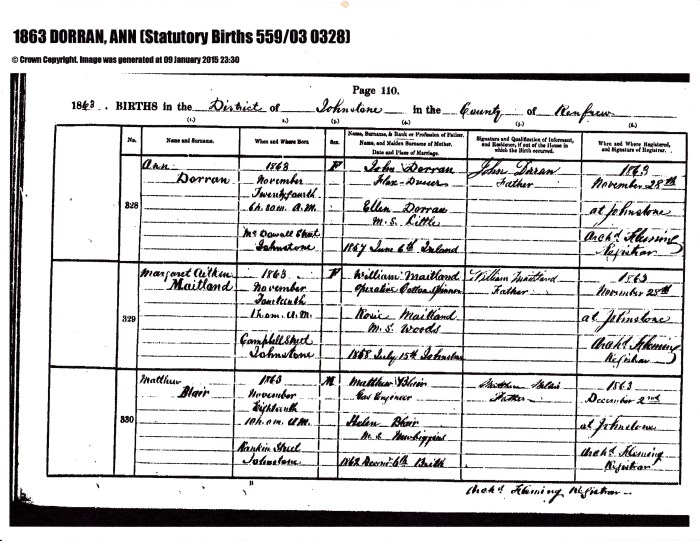 1863 DORRAN, ANN (Statutory Births 559/03 0328)
© Crown Copyright. Image was generated at 09 January 2015 23:30
Page 110.
1863. BIRTHS in the District of Johnstone in the County of Renfrew
(1.) (2.) (3.) (4.) (5.) (6.)
No. Name and Surname. When and Where Born Sex. Name, Surname, & Rank or Profession of Father. Name, and Maiden Surname of Mother. Date and Place of Marriage. Signature and Qualification of Informant, and Residence, if out of the House in which the Birth occurred. When and Where Registered, and Signature of Registrar.
328
Ann
Dorran
1863
November
Twenty fourth
6h. 30m. A.M.
McDowall Street
Johnstone
F
John Dorran
Flax-Dresser
Ellen Dorran
M.S. Little
1857 June 6th Ireland
John Dorran
Father
1863
November 28th
at Johnstone
Archd Fleming
Registrar
329
Margaret Aitken
Maitland
1863
November
1h. 0m. A.M.
Campbell Street
Johnstone
F
William Maitland
Operative Cotton Spinner
Maitland
M.S. Woods
July 15th Johnstone
William Maitland
Father
1863
November
at Johnstone
Archd Fleming
Registrar
330
Matthew
Blair
1863
November
Eighteenth
10h. 0m. A.M.
Rankin Street
Johnstone
M
Matthew Blair
Gas Engineer
Helen Blair
M.S. Newbiggins
1862
Matthew Blair
Father
1863
December 2nd
at Johnstone
Archd Fleming
Registrar
Archd Fleming Registrar